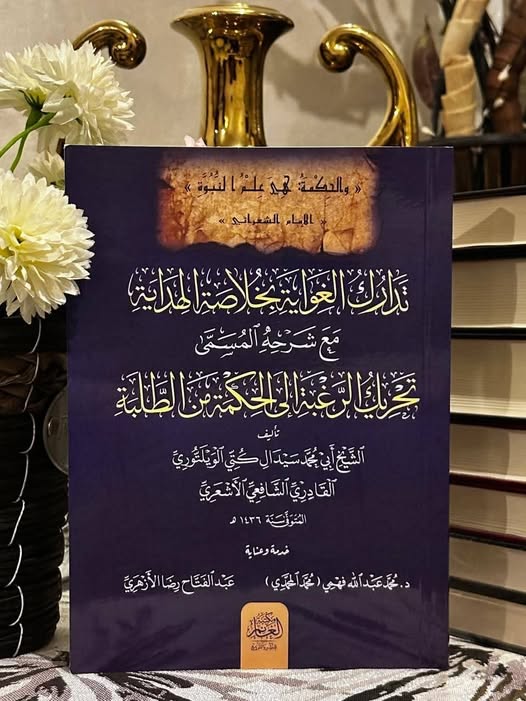 « والحكمة: هي علم النبوة »
« الإمام الشعراني »
تدارك الغواية بخلاصة الهداية
مع شرحه المسمى
تحريك الرغبة إلى الحكمة من الطلبة
تأليف
الشيخ أبي محمد سيدال كتي الويلتوري
القادري الشافعي الأشعري
المتوفى سنة ١٤٣٦ هـ
خدمة وعناية
د. محمد عبد الله فهمي (محمد المحمدي) عبد الفتاح رضا الأزهري
مكتبة
الغانم